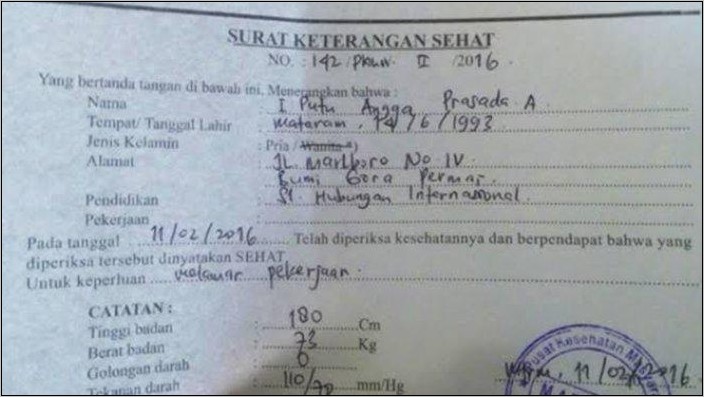 SURAT KETERANGAN SEHAT
NO. : 142/PKMM. II /2016.
Yang bertanda tangan di bawah ini, Menerangkan bahwa :
Nama : I Putu Angga Prasada. A
Tempat/ Tanggal Lahir : Mataram, 14/6/1993
Jenis Kelamin : Pria / Wanita *)
Alamat : Jl. Marlboro No IV.
Bumi Gora Permai.
Pendidikan : S1. Hubungan Internasional.
Pekerjaan :
Pada tanggal 11/02/2016 Telah diperiksa kesehatannya dan berpendapat bahwa yang
diperiksa tersebut dinyatakan SEHAT
Untuk keperluan melamar pekerjaan.
CATATAN :
Tinggi badan : 180 Cm
Berat badan : 73 Kg
Golongan darah : O
Tekanan darah : 110/70 mm/Hg
Pusat Kesehatan Masyar
11/02/2016